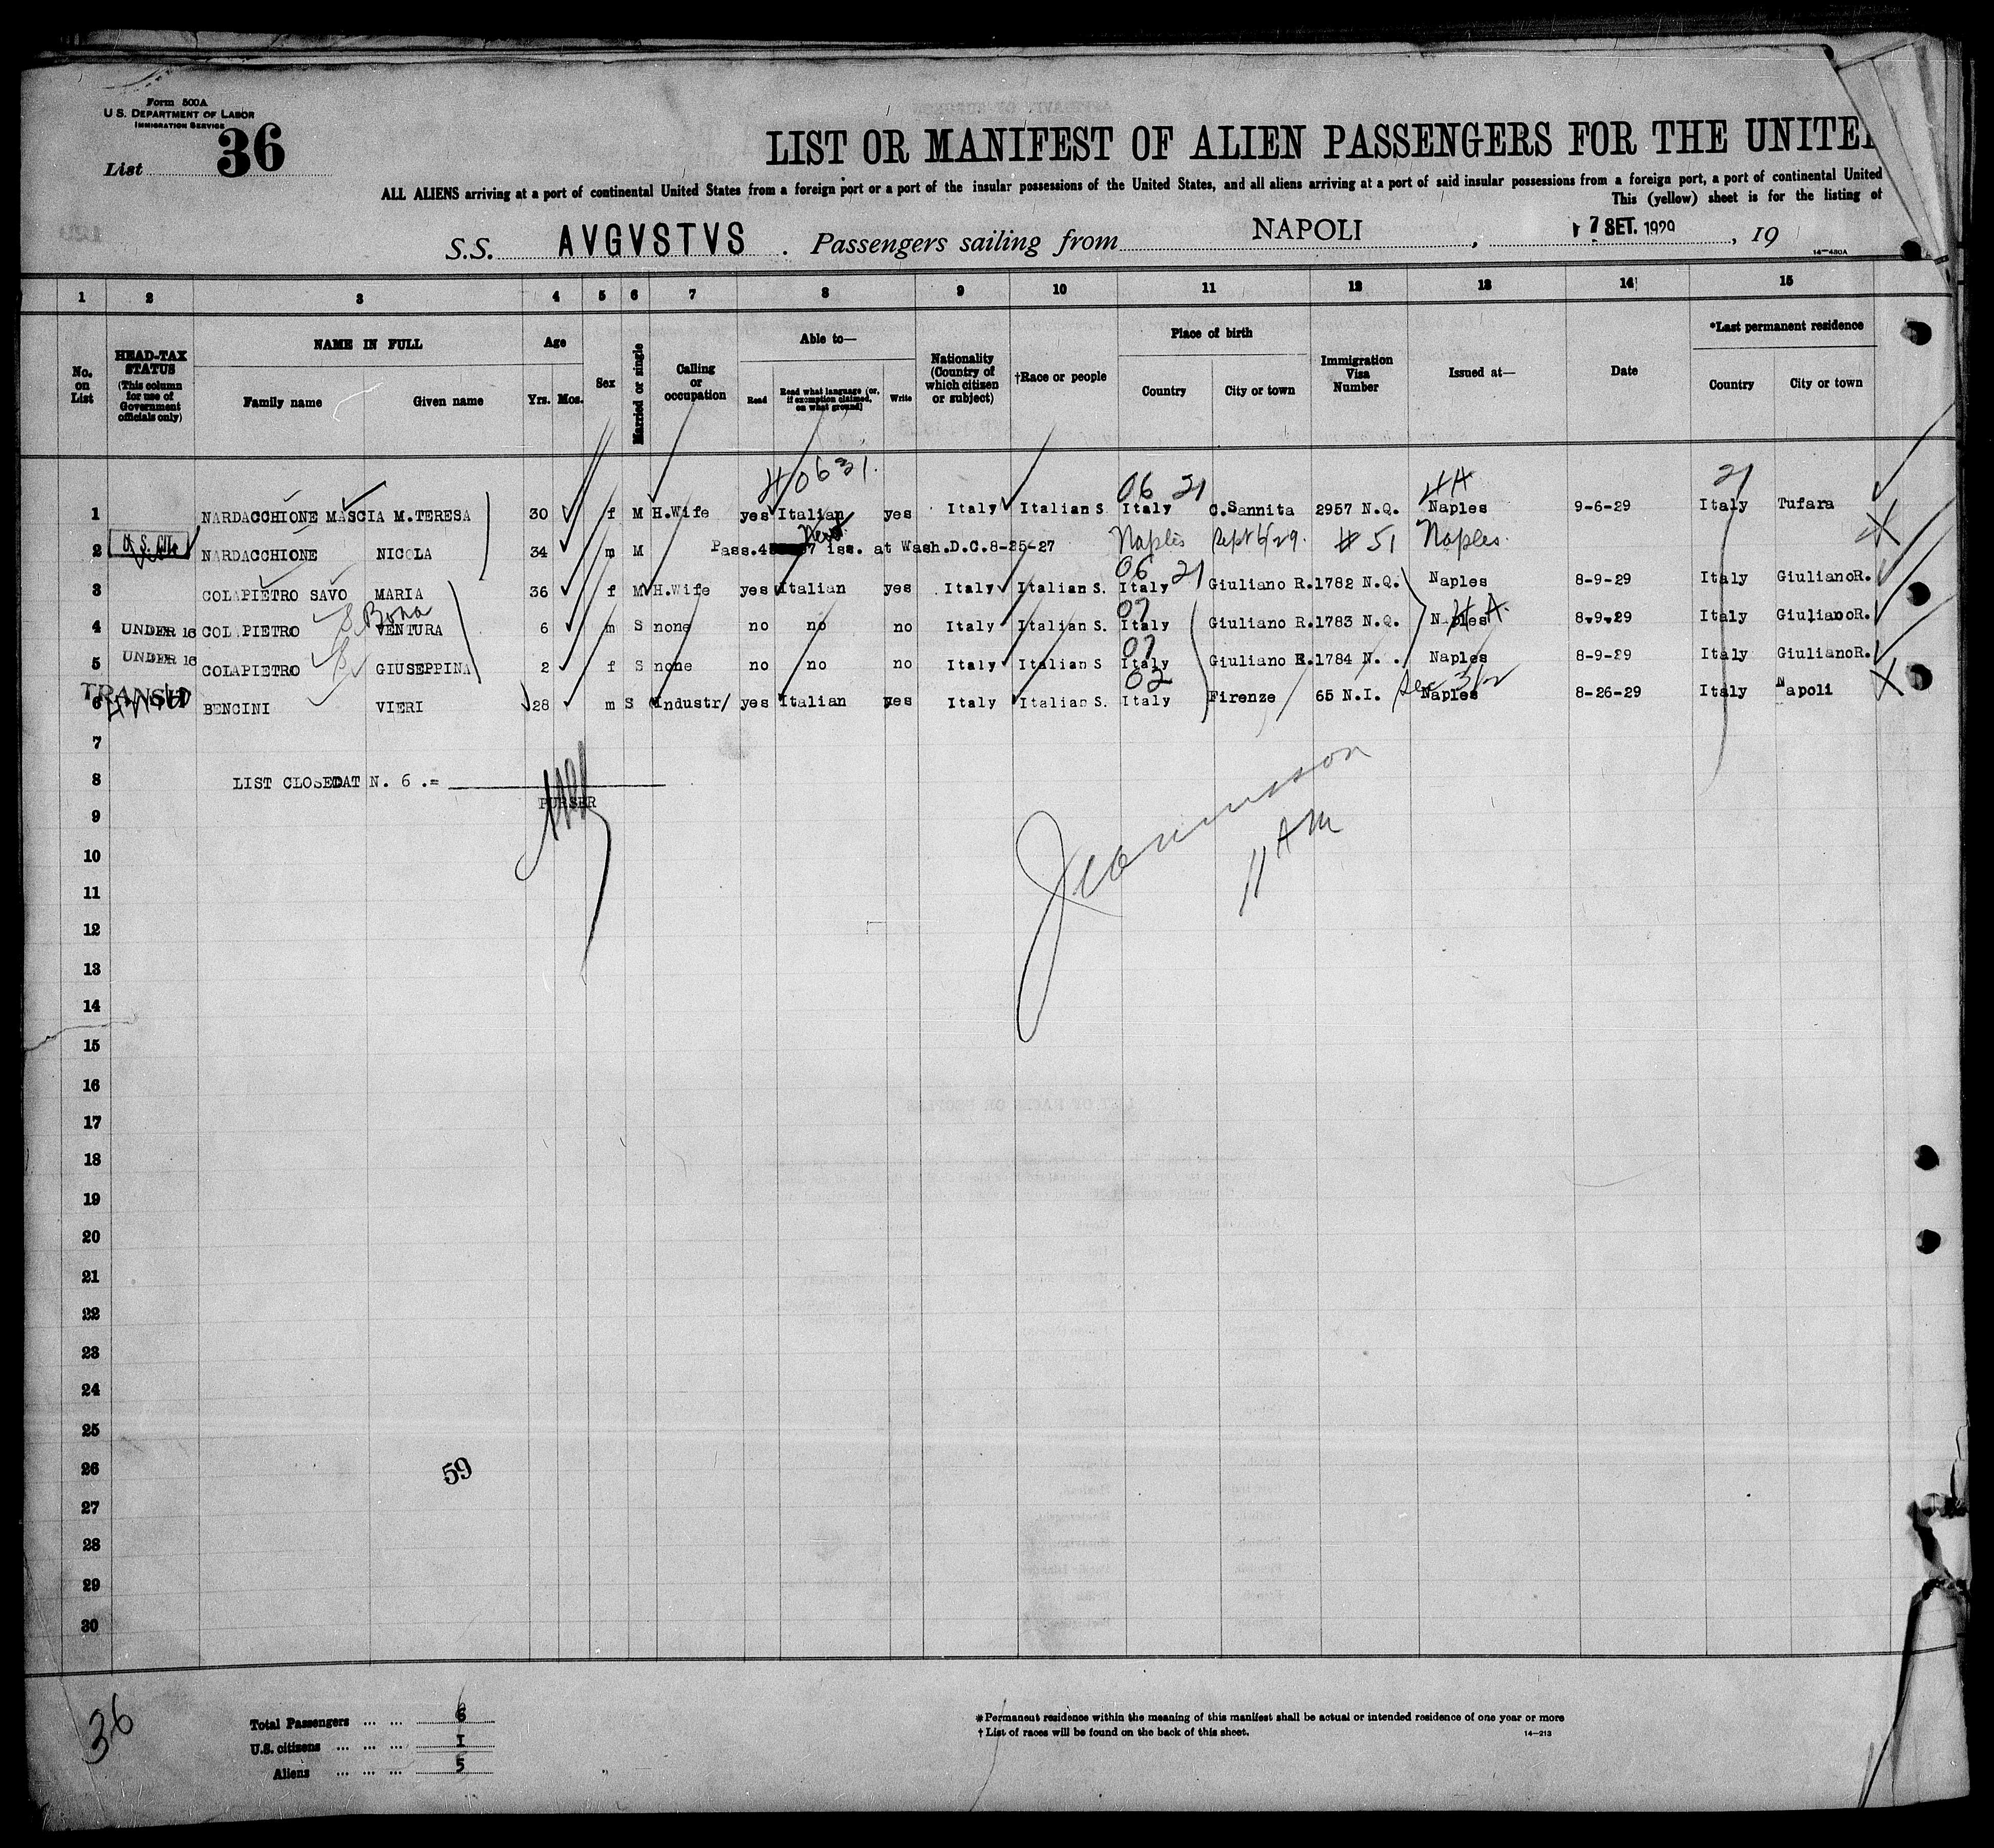 Form 500A
U.S. DEPARTMENT OF LABOR
IMMIGRATION SERVICE
List 36
LIST OR MANIFEST OF ALIEN PASSENGERS FOR THE UNITED
ALL ALIENS arriving at a port of continental United States from a foreign port or a port of the insular possessions of the United States, and all aliens arriving at a port of said insular possessions from a foreign port, a port of continental United
This (yellow) sheet is for the listing of
S.S. AVGVSTVS . Passengers sailing from NAPOLI , 7 SET. 1929 , 19
14-430A
1 2 3 4 5 6 7 8 9 10 11 12 13 14 15
No. on List
HEAD-TAX STATUS (This column for use of Government officials only)
NAME IN FULL
Family name Given name
Age
Yrs. Mos.
Sex
Married or single
Calling or occupation
Able to—
Read Read what language (or, if exemption claimed, on what ground) Write
Nationality (Country of which citizen or subject)
†Race or people
Place of birth
Country City or town
Immigration Visa Number
Issued at—
Date
*Last permanent residence
Country City or town
40631. 06 21 21
1 NARDACCHIONE MASCIA M.TERESA 30 f M H.Wife yes Italian yes Italy Italian S Italy C.Sannita 2957 N.Q. Naples 9-6-29 Italy Tufara
2 U.S. CIT. NARDACCHIONE NICOLA 34 m M Pass. iss. at Wash.D.C.8-25-27 Naples Sept 6/29. #51 Naples.
06 21
3 COLAPIETRO SAVO MARIA 36 f M H.Wife yes Italian yes Italy Italian S. Italy Giuliano R. 1782 N.Q. Naples 8-9-29 Italy GiulianoR.
Bona 07
4 UNDER 16 COL.PIETRO VENTURA 6 m S none no no no Italy Italian S. Italy Giuliano R. 1783 N.Q. Naples 8-9-29 Italy GiulianoR.
07
5 UNDER 16 COLAPIETRO GIUSEPPINA 2 f S none no no no Italy Italian S Italy Giuliano R. 1784 N. . Naples 8-9-29 Italy GiulianoR.
02
6 TRANSIT BENCINI VIERI 28 m S Industr/ yes Italian yes Italy Italian S. Italy Firenze 65 N.I. Naples 8-26-29 Italy Napoli
7
8 LIST CLOSEDAT N. 6 .=
PURSER
9
10
11 AM
11
12
13
14
15
16
17
18
19
20
21
22
23
24
25
26
59
27
28
29
30
36
Total Passengers ... ... 6
U.S. citizens ... ... ... I
Aliens ... ... ... 5
*Permanent residence within the meaning of this manifest shall be actual or intended residence of one year or more
†List of races will be found on the back of this sheet.
14-213